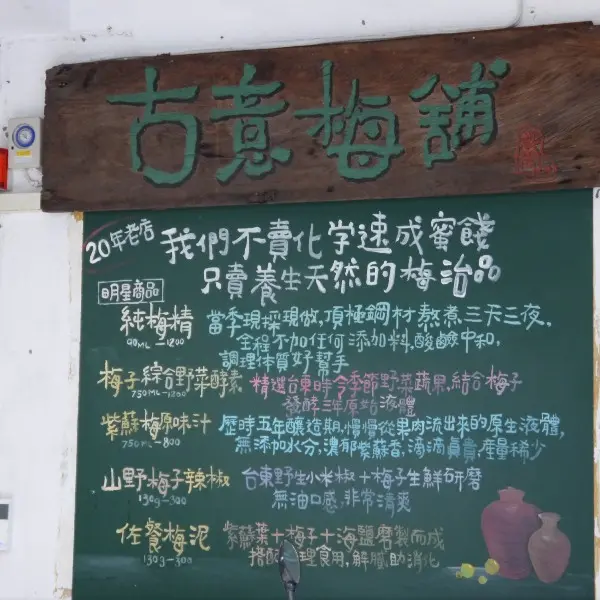 古意梅舖
20年老店
我們不賣化学速成蜜餞
只賣養生天然的梅治品
明星商品
純梅精
90ML-1200
當季現採現做,頂極鋼材熬煮三天三夜,
全程不加任何添加料,酸鹼中和,
調理体質好幫手
梅子綜合野菜酵素
750ML-1200
精選台東時令季節野菜蔬果,結合梅子
發酵三年原始液體
紫蘇梅原味汁
750ML-800
歷時五年釀造期,慢慢從果肉流出來的原生液體,
無添加水分,濃郁紫蘇香,滴滴眞貴,產量稀少
山野梅子辣椒
130g-300
台東野生小米椒+梅子生鮮研磨
無油口感,非常清爽
佐餐梅泥
130g-300
紫蘇葉+梅子+海鹽磨製而成
搭配理食用,解膩助消化